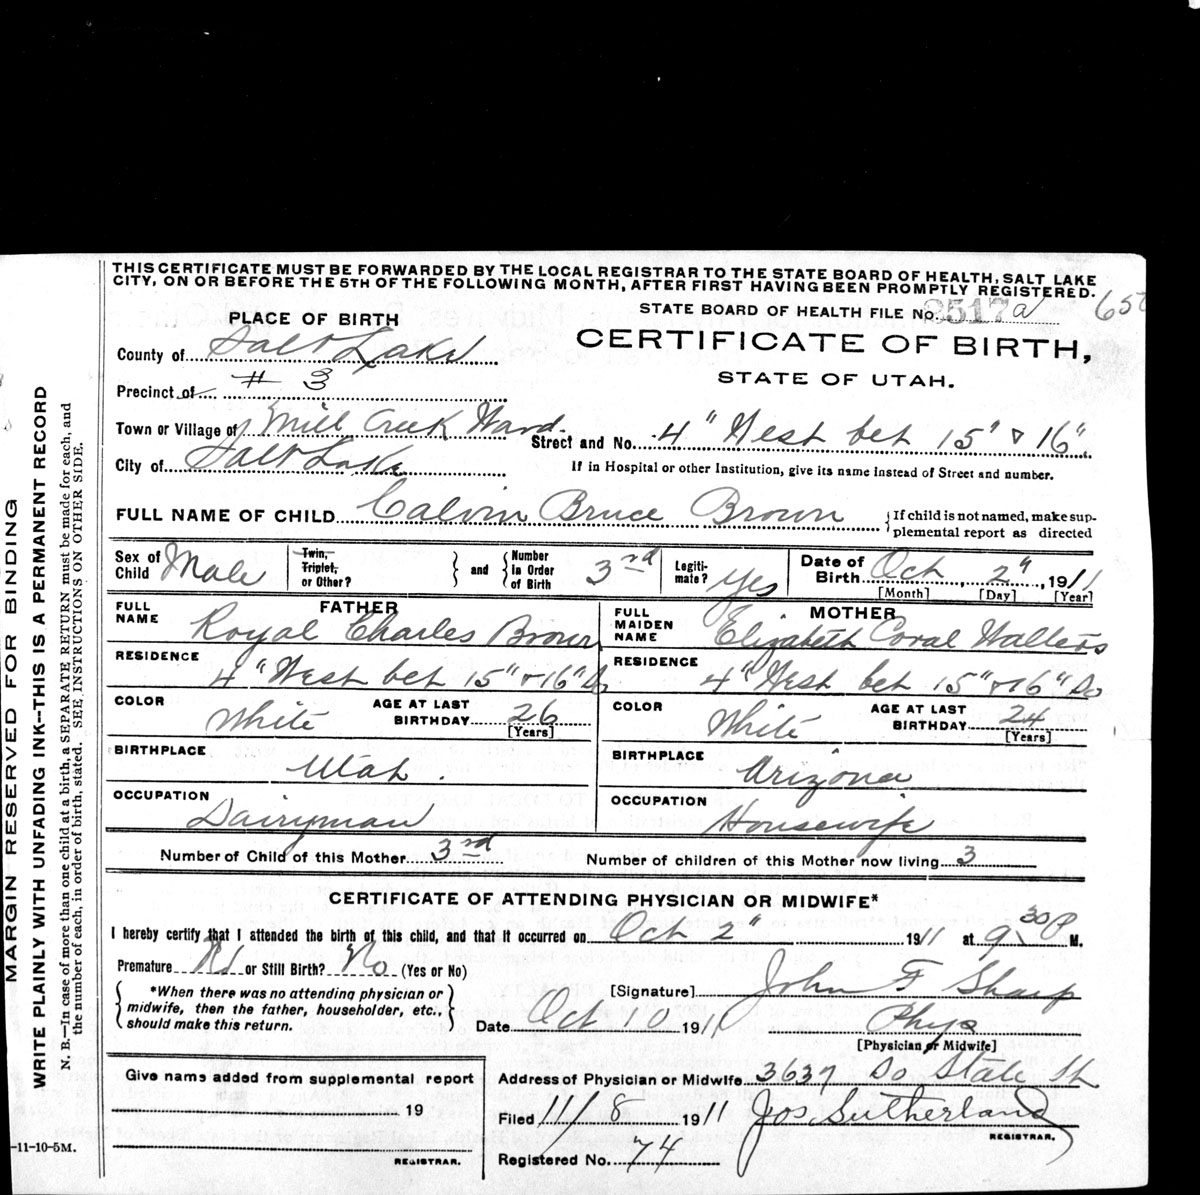 THIS CERTIFICATE MUST BE FORWARDED BY THE LOCAL REGISTRAR TO THE STATE BOARD OF HEALTH, SALT LAKE
CITY, ON OR BEFORE THE 5TH OF THE FOLLOWING MONTH, AFTER FIRST HAVING BEEN PROMPTLY REGISTERED.
STATE BOARD OF HEALTH FILE No. 517 a
PLACE OF BIRTH
CERTIFICATE OF BIRTH,
STATE OF UTAH.
County of Salt Lake
Precinct of # 3
Town or Village of Mill Creek Ward.
Street and No. 4" West bet 15" & 16"
City of Salt Lake
If in Hospital or other Institution, give its name instead of Street and number.
FULL NAME OF CHILD Calvin Bruce Brown
{If child is not named, make sup-
plemental report as directed
Sex of Child Male
Twin, Triplet, or Other?
and
Number in Order of Birth 3rd
Legiti-mate? Yes
Date of Birth Oct, 2", 1911
[Month] [Day] [Year]
FATHER
FULL NAME Royal Charles Brown
MOTHER
FULL MAIDEN NAME Elizabeth Coral Walters
RESIDENCE 4" West bet 15" & 16" So
RESIDENCE 4" West bet 15" & 16" So
COLOR White
AGE AT LAST BIRTHDAY 26 [Years]
COLOR White
AGE AT LAST BIRTHDAY 24 [Years]
BIRTHPLACE Utah.
BIRTHPLACE Arizona
OCCUPATION Dairyman
OCCUPATION Housewife
Number of Child of this Mother 3rd
Number of children of this Mother now living 3
CERTIFICATE OF ATTENDING PHYSICIAN OR MIDWIFE*
I hereby certify that I attended the birth of this child, and that it occurred on Oct 2" 1911 at 9 30 P M.
Premature or Still Birth? No (Yes or No)
*When there was no attending physician or
midwife, then the father, householder, etc.,
should make this return.
[Signature] John F Sharp
Date Oct 10 1911
Phys
[Physician or Midwife]
Give name added from supplemental report
19
REGISTRAR.
Address of Physician or Midwife 3637 So State St
Filed 11/8 1911 Jos Sutherland
REGISTRAR.
Registered No. 74
-11-10-5M.
MARGIN RESERVED FOR BINDING
WRITE PLAINLY WITH UNFADING INK--THIS IS A PERMANENT RECORD
N. B.—In case of more than one child at a birth, a SEPARATE RETURN must be made for each, and
the number of each, in order of birth, stated. SEE INSTRUCTIONS ON OTHER SIDE.